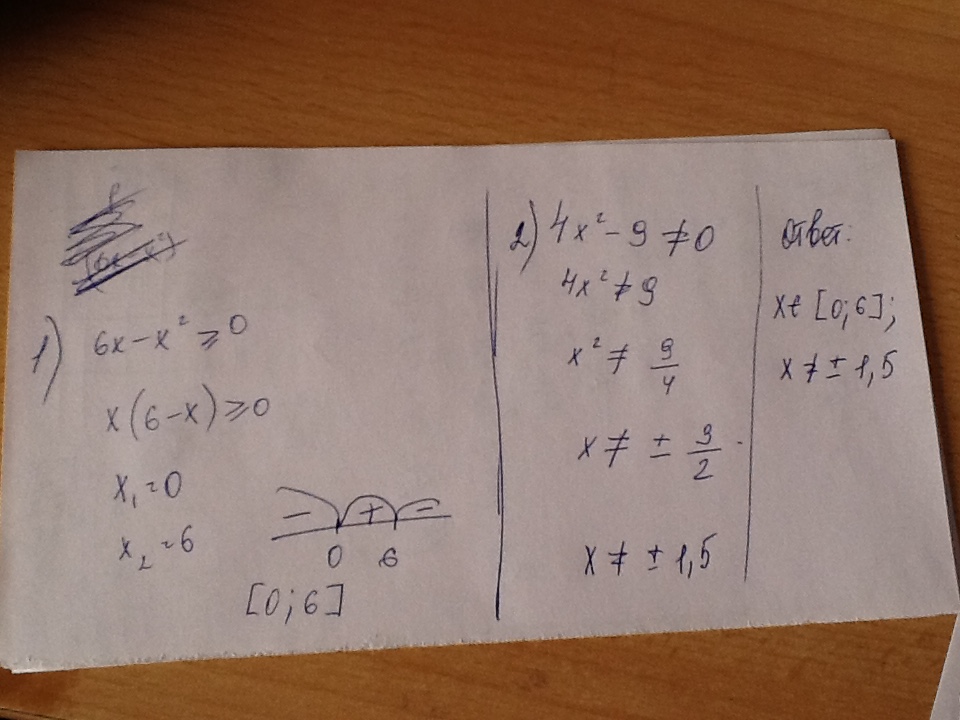 1) 6x-x² ≥ 0
x(6-x) ≥ 0
x₁=0
x₂=6
- + -
0 6
[0;6]
2) 4x²-9 ≠ 0
4x² ≠ 9
x² ≠ 9/4
x ≠ ± 9/2
x ≠ ± 1,5
ответ:
x∈ [0;6];
x ≠ ± 1,5